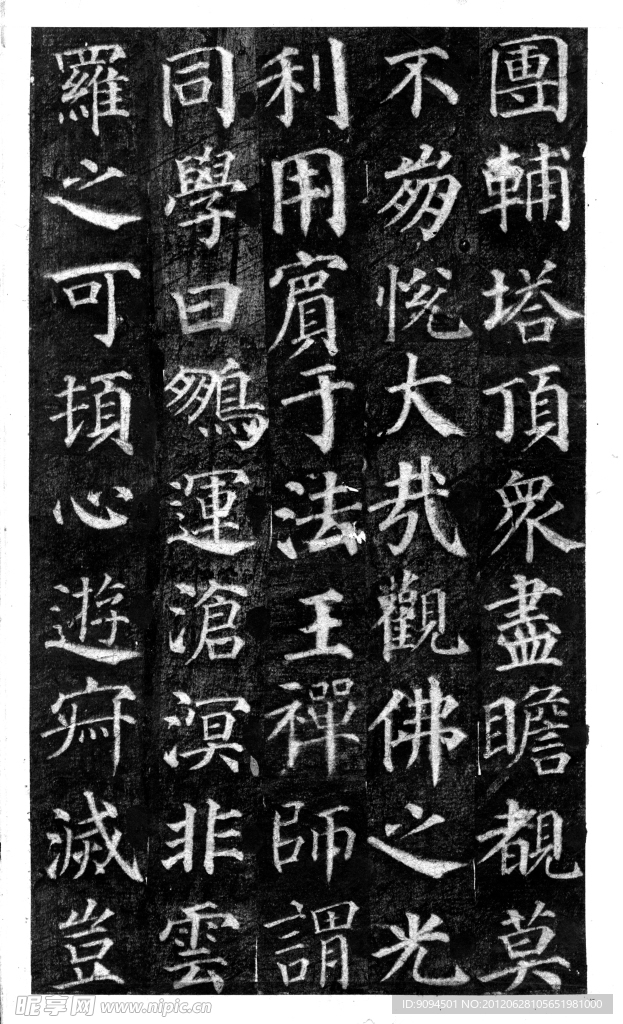 團輔塔頂眾盡瞻覩莫
不崩悅大哉觀佛之光
利用賓于法王禪師謂
同學曰鵬運滄溟非雲
羅之可頓心遊寂滅豈
昵享网 www.nipic.cn
ID:9094501 NO:20120628105651981000